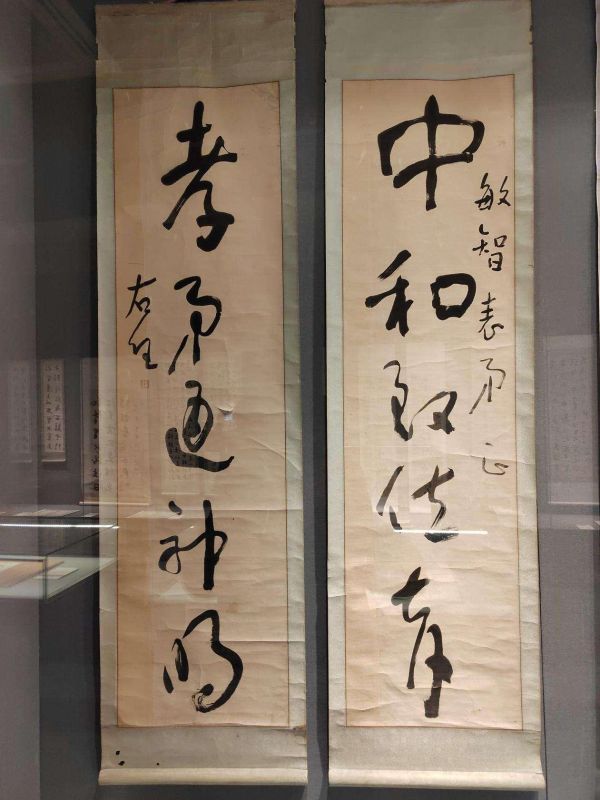 敏智表弟正
中和致位育
孝弟通神明
右任